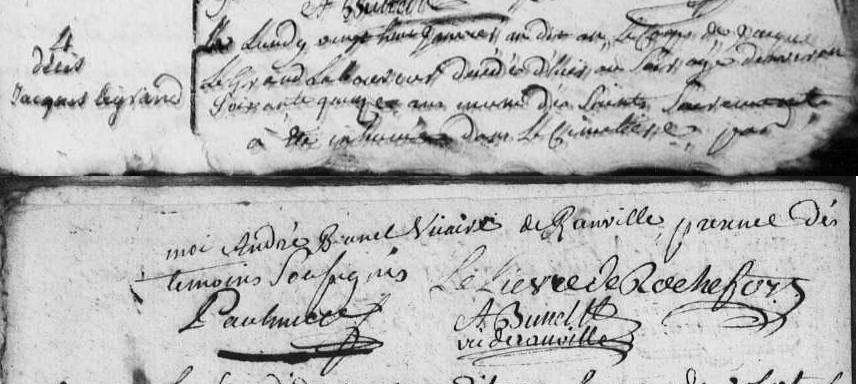 A Bunel
4
décès
Jacques legrand
Le Lundy vingt huit Janvier dudit an, Le Corps de Jacque
Le Grand Laboureur décédé d'hier au soir agé d'environ
Soixante quinze ans muni des Saints Sacrements
a été inhumé dans Le Cimetiere, par
moi André Bunel Vicaire de Ranville, presence dés
temoins Soussignés Le Lievre de Rochefort
Paulmier A Bunel
vic de ranville